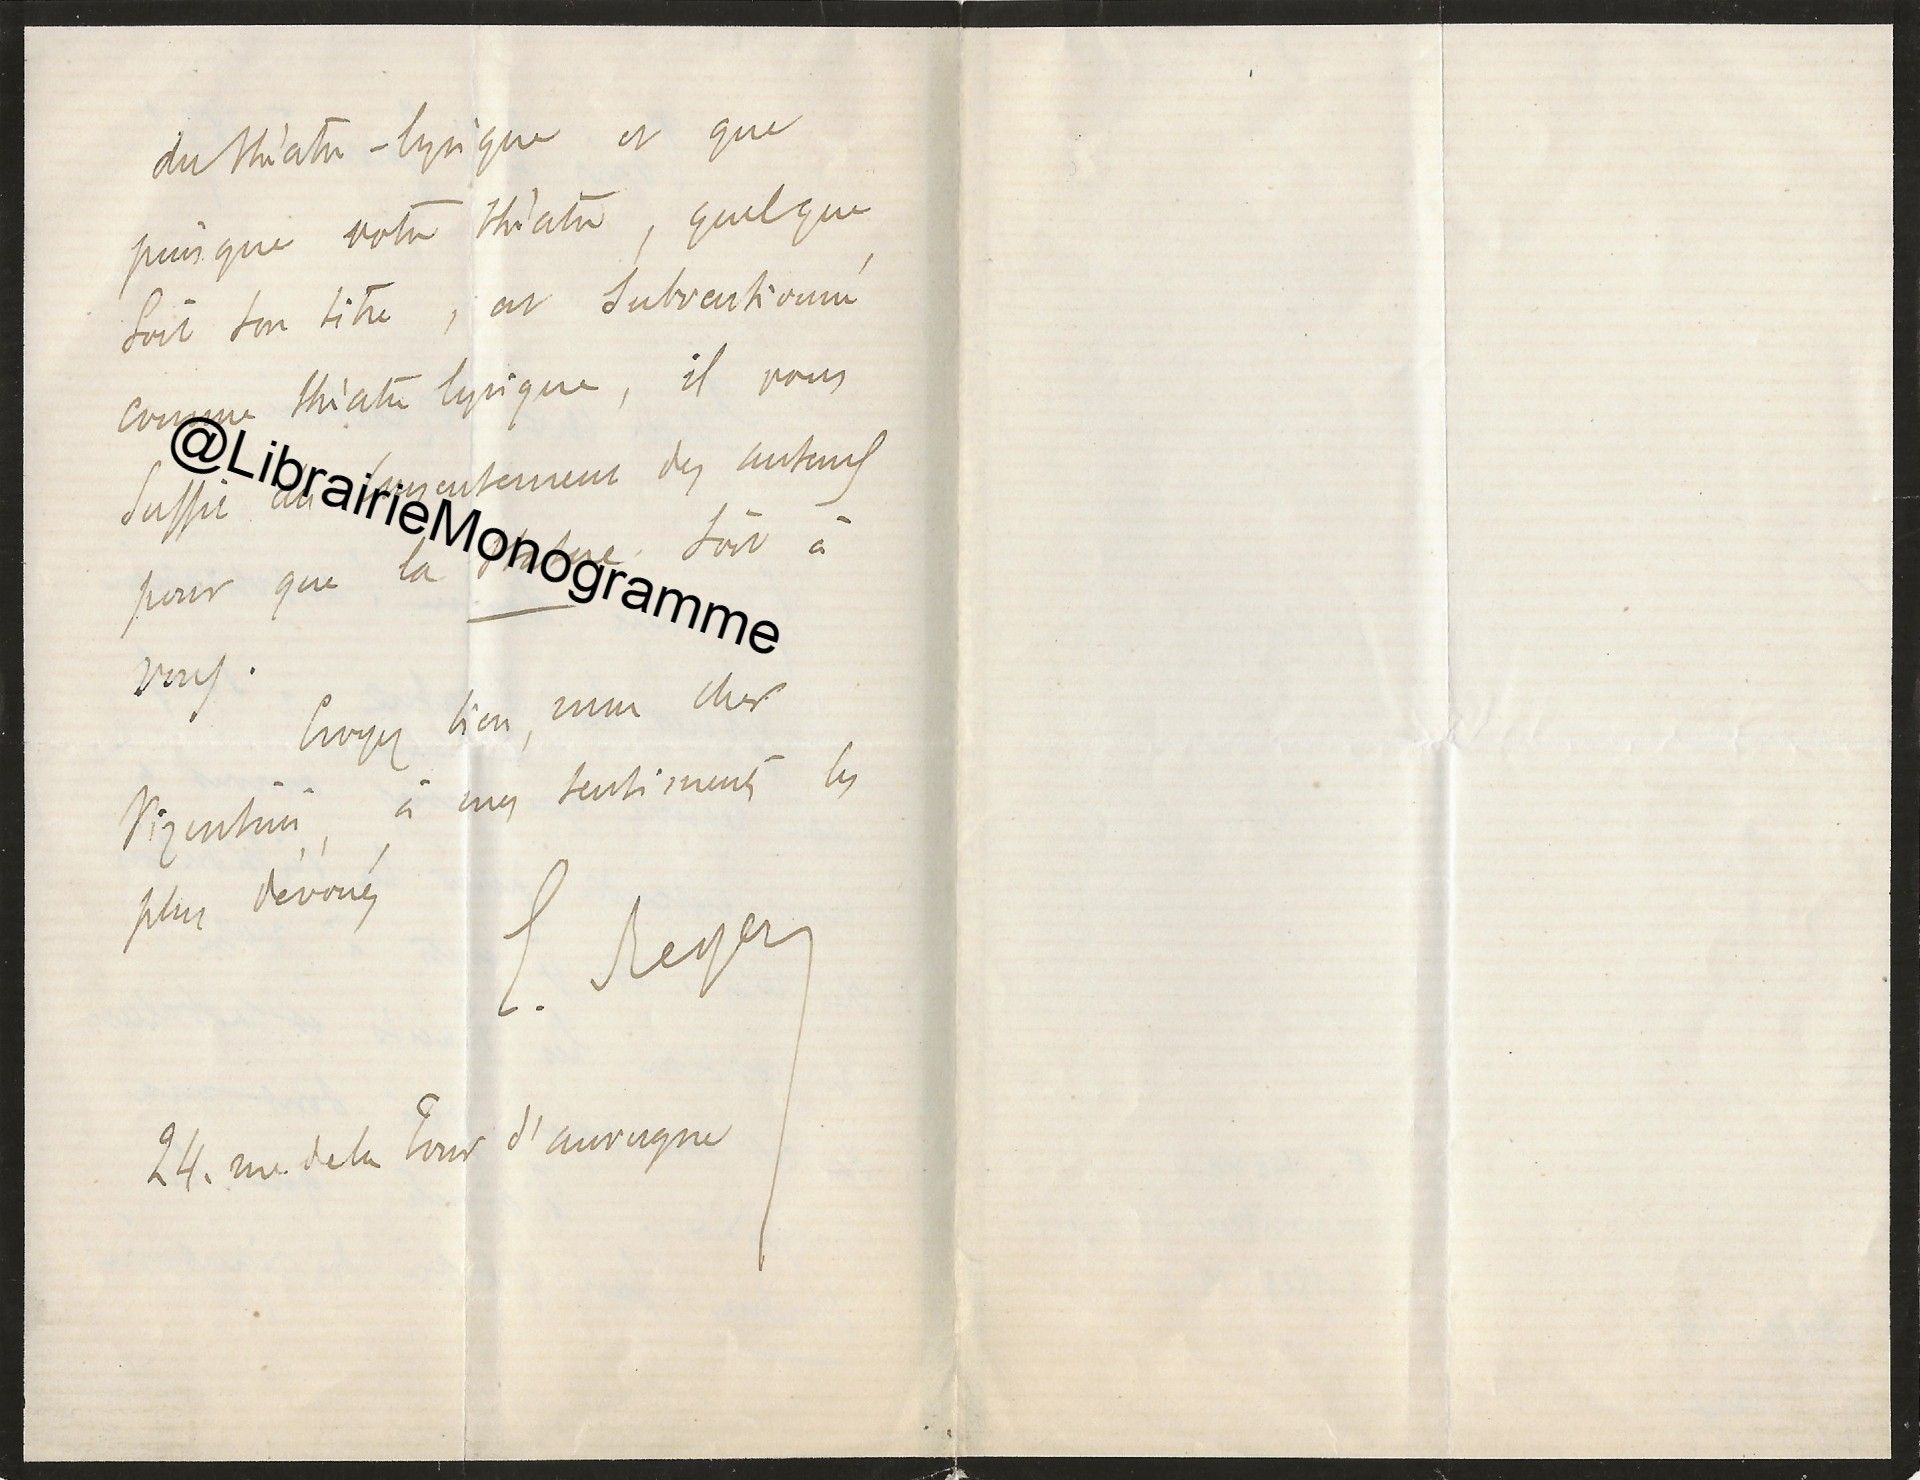 du théatre-lyrique et que
puisque votre théatre, quelque
soit son titre, est subventionné
comme théatre lyrique, il vous
suffit du consentement des auteurs
pour que la Statue soit à
vous.
Croyez bien, mon cher
Vizentini, à mes sentiments les
plus dévoués
E. Reyer
24. rue de la Tour d'auvergne
@LibrairieMonogramme